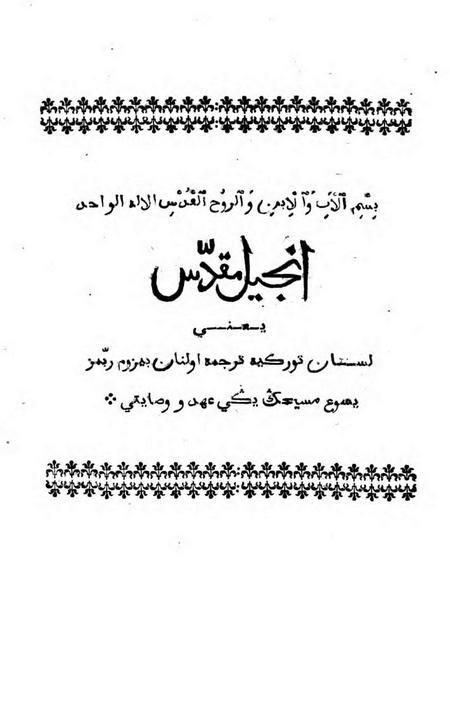 بِسْمِ ٱلْاَبِ وَٱلْاِبْنِ وَٱلروُحِ ٱلْقُدْسِ الاله الواحد
انجيل مقدّس
يـعـنـي
لسان توركيه ترجمه اولنان بيزوم ربّمز
يسوع مسيحڭ يڭي عهد و وصايتي ❖